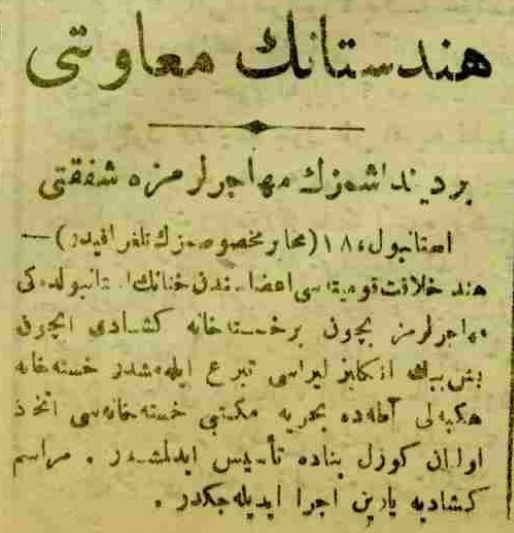 هندستانك معاونتى
بر دينداشمزك مهاجرلرمزه شفقتى
استانبول، ١٨ (مخابر مخصوصمزك تلغرافيدر) —
هند خلافت قوميته سى اعضاسندن خنانك استانبولده كى
مهاجرلرمز ايچون بر خسته خانه كشادى ايچون
بش بيك انكليز ليراسى تبرع ايله مشدر خسته خانه
هكبه لى آطه ده بحريه مكتبى خسته خانه سى اتخاذ
اولنان كوزل بناده تأسيس ايدلمشدر . مراسم
كشاديه يارين اجرا ايديله جكدر .